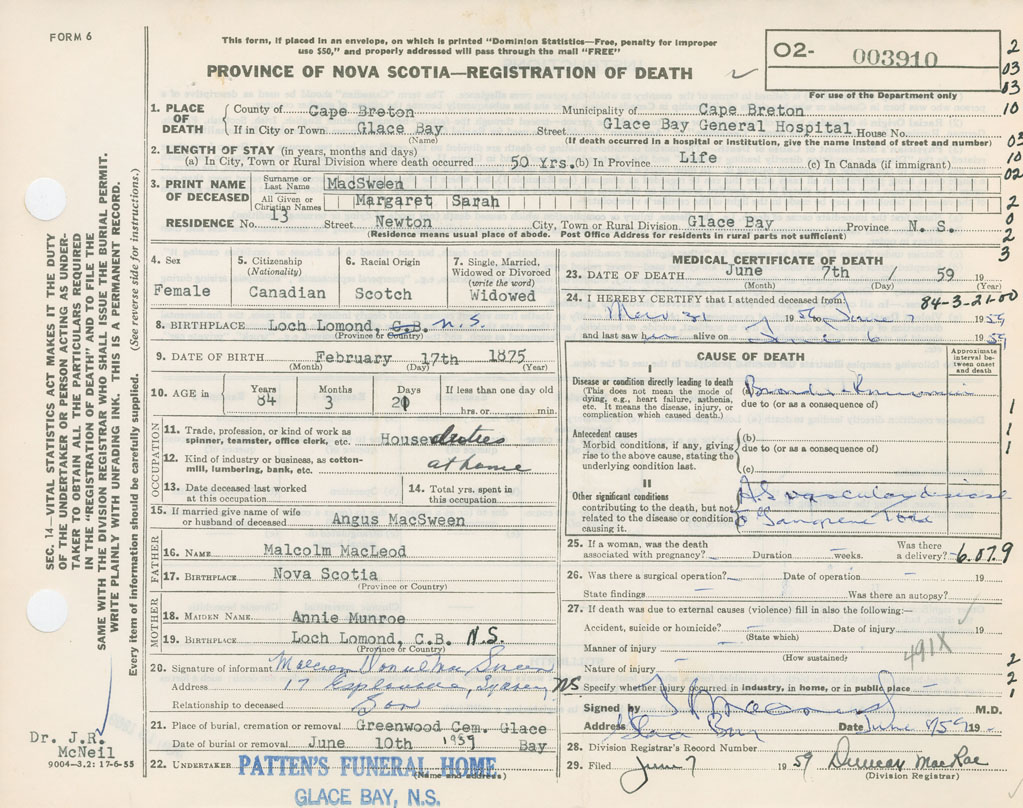 FORM 6
This form, if placed in an envelope, on which is printed "Dominion Statistics—Free, penalty for improper
use $50," and properly addressed will pass through the mail "FREE"
PROVINCE OF NOVA SCOTIA—REGISTRATION OF DEATH
02- 003910
For use of the Department only
2
03
03
10
03
10
02
2
0
2
3
1. PLACE OF DEATH
County of Cape Breton Municipality of Cape Breton
If in City or Town Glace Bay Street Glace Bay General Hospital House No.
(Name) (If death occurred in a hospital or institution, give the name instead of street and number)
2. LENGTH OF STAY (in years, months and days)
(a) In City, Town or Rural Division where death occurred 50 Yrs. (b) In Province Life (c) In Canada (if immigrant)
3. PRINT NAME OF DECEASED
Surname or Last Name MacSween
All Given or Christian Names Margaret Sarah
RESIDENCE No. 13 Street Newton City, Town or Rural Division Glace Bay Province N. S.
(Residence means usual place of abode. Post Office Address for residents in rural parts not sufficient)
4. Sex
Female
5. Citizenship
(Nationality)
Canadian
6. Racial Origin
Scotch
7. Single, Married,
Widowed or Divorced
(write the word)
Widowed
8. BIRTHPLACE Loch Lomond, C.B. N.S.
(Province for Country)
9. DATE OF BIRTH February 17th 1875
(Month) (Day) (Year)
10. AGE in
Years 84
Months 3
Days 21
If less than one day old
hrs. or min.
OCCUPATION
11. Trade, profession, or kind of work as
spinner, teamster, office clerk, etc. House duties
12. Kind of industry or business, as cotton-
mill, lumbering, bank, etc. at home
13. Date deceased last worked
at this occupation
14. Total yrs. spent in
this occupation
15. If married give name of wife
or husband of deceased Angus MacSween
FATHER
16. NAME Malcolm MacLeod
17. BIRTHPLACE Nova Scotia
(Province or Country)
MOTHER
18. MAIDEN NAME Annie Munroe
19. BIRTHPLACE Loch Lomond, C.B. N.S.
(Province or Country)
20. Signature of informant
Address 17 Esplanade, Sydney NS
Relationship to deceased Son
21. Place of burial, cremation or removal Greenwood Cem. Glace
Date of burial or removal June 10th 1959 Bay
22. UNDERTAKER PATTEN'S FUNERAL HOME
(Name and Address)
GLACE BAY, N.S.
MEDICAL CERTIFICATE OF DEATH
23. DATE OF DEATH June 7th / 59 19
(Month) (Day) (Year)
84-3-21-00
24. I HEREBY CERTIFY that I attended deceased from
31 19 to June 7 1959
and last saw alive on June 6 1959
CAUSE OF DEATH
Approximate
interval be-
tween onset
and death
I
Disease or condition directly leading to death
(This does not mean the mode of
dying, e.g., heart failure, asthenia,
etc. It means the disease, injury, or
complication which caused death.)
(a) Broncho-Pneumonia
due to (or as a consequence of)
Antecedent causes
Morbid conditions, if any, giving
rise to the above cause, stating the
underlying condition last.
(b)
due to (or as a consequence of)
(c)
II
Other significant conditions
contributing to the death, but not
related to the disease or condition
causing it.
A.S. vascular disease
Gangrene
1
1
1
1
25. If a woman, was the death
associated with pregnancy? Duration weeks. Was there
a delivery? 6.07.9
26. Was there a surgical operation? Date of operation 19
State findings Was there an autopsy?
27. If death was due to external causes (violence) fill in also the following:—
Accident, suicide or homicide? Date of injury 19
(State which)
Manner of injury
(How sustained)
491X
Nature of injury
Specify whether injury occurred in industry, in home, or in public place
2
2
1
Signed by M.D.
Address Glace Bay Date June 8/59 19
28. Division Registrar's Record Number
29. Filed June 7 1959 Duncan MacRae
(Division Registrar)
SEC. 14—VITAL STATISTICS ACT MAKES IT THE DUTY
OF THE UNDERTAKER OR PERSON ACTING AS UNDER-
TAKER TO OBTAIN ALL THE PARTICULARS REQUIRED
IN THE "REGISTRATION OF DEATH" AND TO FILE THE
SAME WITH THE DIVISION REGISTRAR WHO SHALL ISSUE THE BURIAL PERMIT.
WRITE PLAINLY WITH UNFADING INK. THIS IS A PERMANENT RECORD.
Every item of information should be carefully supplied. (See reverse side for instructions.)
Dr. J.R.
McNeil
9004-3.2: 17-6-55